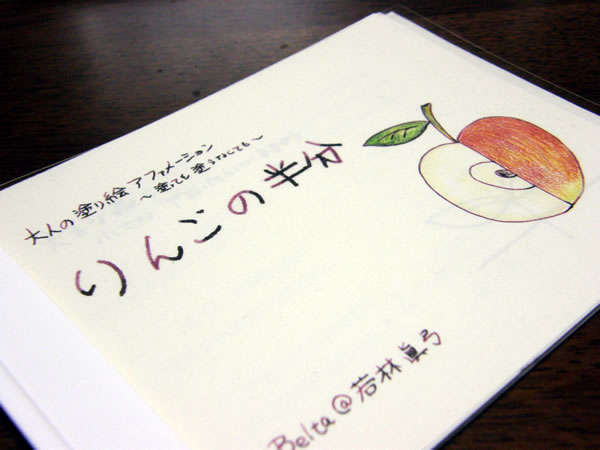 大人の塗り絵アファメーション
～塗っても塗らなくても～
りんごの半分
Belta@若林眞弓